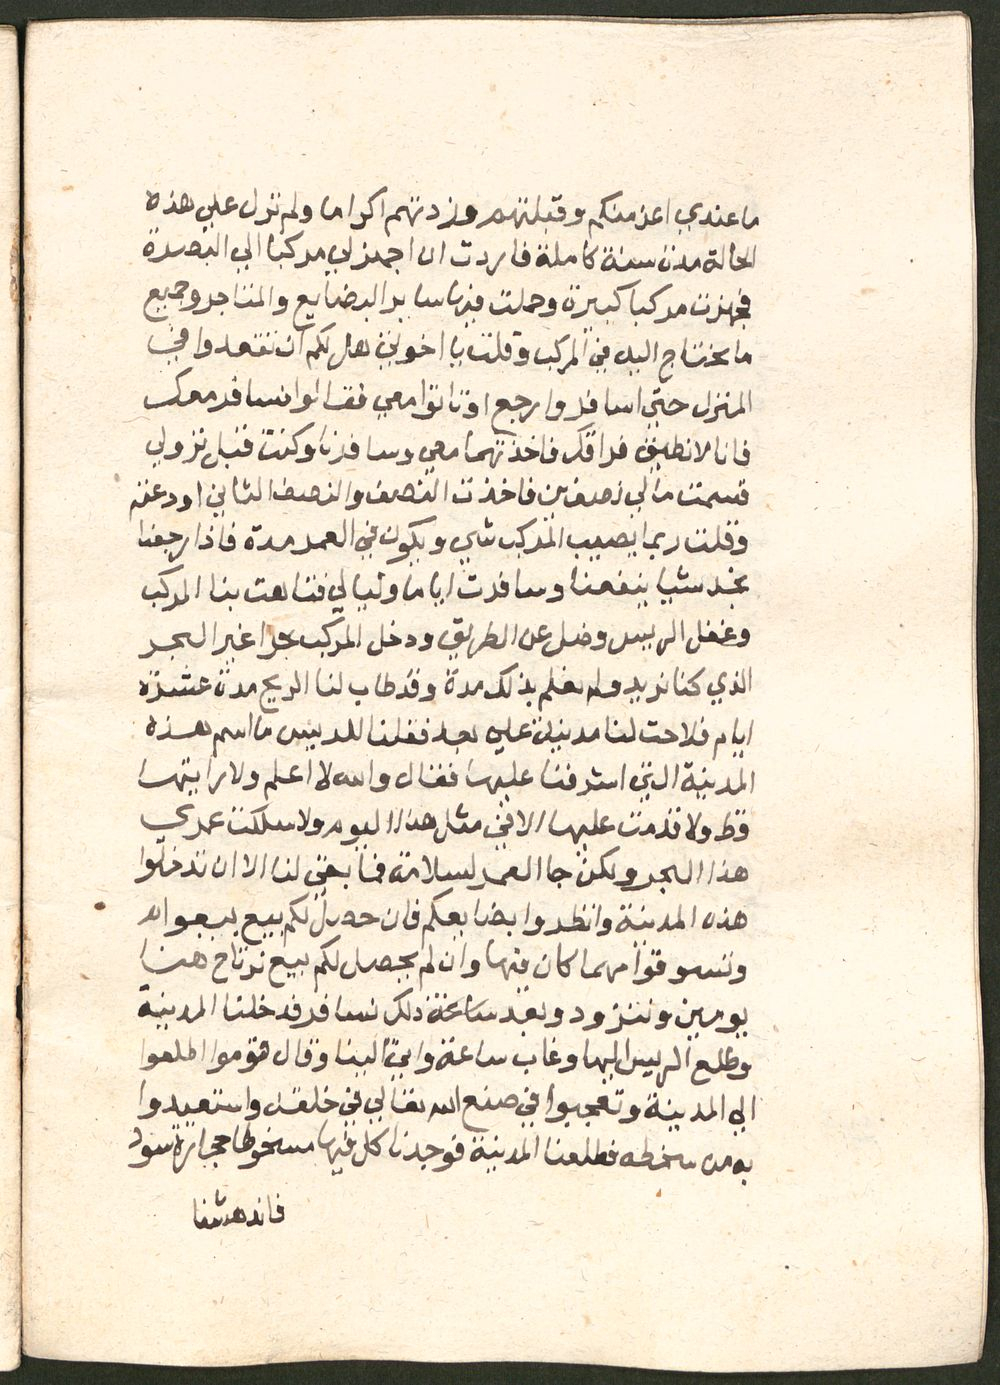 ما عندي اعز منكم وقبلتهم وزدتهم اكراما ولم نزل علي هذه
الحالة مدة سنة كاملة فاردت ان اجهز لي مركبا الي البصرة
فجهزت مركبا كبيرة وحملت فيها ساير البضايع والمتاجر وجميع
ما يحتاج اليه في المركب وقلت يا اخوتي هل لكم ان تقعدوا في
المنزل حتي اسافر وارجع او تاتوا معي فقالوا نسافر معك
فاننا لا نطيق فراقك فاخذتهما معي وسافرنا وكنت قبل نزولي
قسمت مالي نصفين فاخذت النصف والنصف الثاني اودعته
وقلت ربما يصيب المركب شي ويكون في العمر مدة فاذا رجعنا
نجد شيا ينفعنا وسافرت اياما وليالي فتاهت بنا المركب
وغفل الريس وضل عن الطريق ودخل المركب بحرا غير البحر
الذي كنا نريد ولم نعلم بذلك مدة وقد طاب لنا الريح مدة عشرة
ايام فلاحت لنا مدينة علي بعد فقلنا للريس ما اسم هذه
المدينة التي اشرفنا عليها فقال والله لا اعلم ولا رايتها
قط ولا قدمت عليها الا في مثل هذا اليوم ولا سلكت عمري
هذا البحر ولكن جا العمر بسلامة فما بقي لنا الا ان تدخلوا
هذه المدينة وانظروا بضايعكم فان حصل لكم بيع بيعوا
وتسوقوا مهما كان فيها وان لم يحصل لكم بيع نرتاح هنا
يومين ونتزود وبعد ذلك نسافر فدخلنا المدينة
وطلع الريس اليها وغاب ساعة واتي الينا وقال قوموا اطلعوا
الي المدينة وتعجبوا في صنع الله تعالي في خلقه واستعيذوا
به من سخطه فطلعنا المدينة فوجدنا كل فيها مسخوطا حجارة سود
فاندهشنا